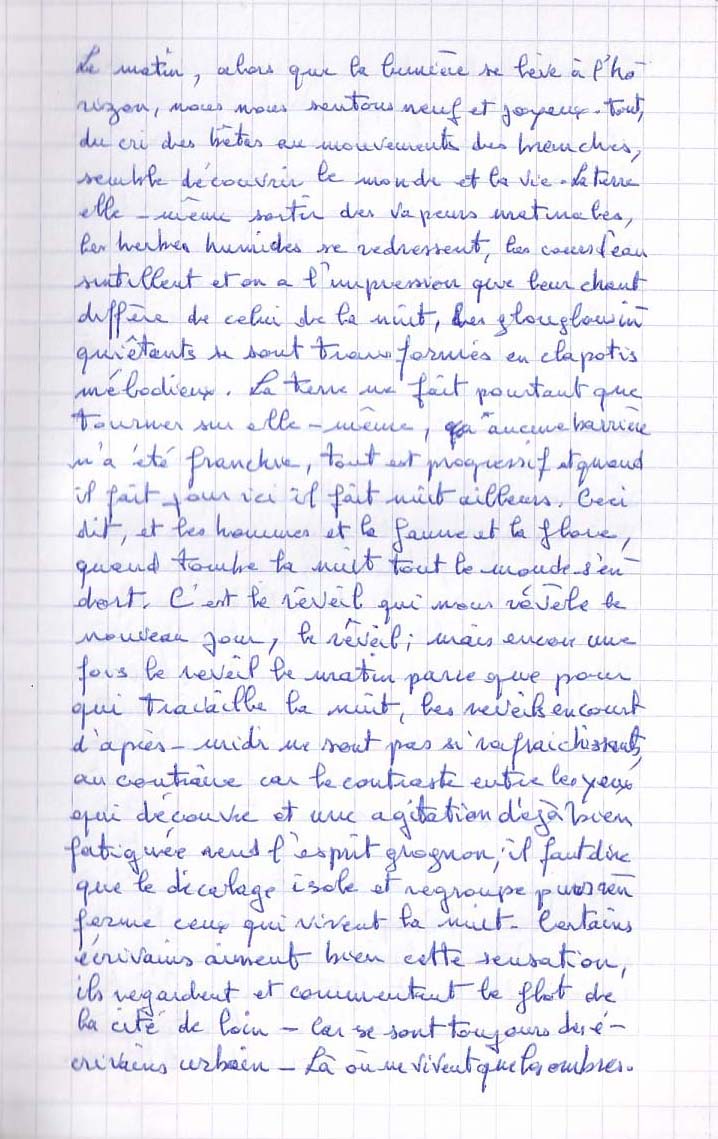 Le matin, alors que la lumière se lève à l'ho-
rizon, nous nous sentons neuf et joyeux. tout,
du cri des bêtes au mouvements des branches,
semble découvrir le monde et la vie. La terre
elle-même sortir des vapeurs matinales,
les herbes humides se redressent, les cours d'eau
sintillent et on a l'impression que leur chant
diffère de celui de la nuit, les glouglou in-
quiêtants se sont transformés en clapotis
mélodieux. La terre ne fait pourtant que
tourner sur elle-même, aucune barrière
n'a été franchie, tout est progressif et quand
il fait jour ici il fait nuit ailleurs. Ceci
dit, et les hommes et la faune et la flore,
quand tombe la nuit tout le monde s'en-
dort. C'est le réveil qui nous révèle le
nouveau jour, le réveil; mais encore une
fois le reveil le matin parce que pour
qui travaille la nuit, les reveils en court
d'après-midi ne sont pas si rafraichissants,
au contraire car le contraste entre les yeux
qui découvre et une agitation déjà bien
fatiguée rend l'esprit grognon, il faut dire
que le décalage isole et regroupe puis ren
ferme ceux qui vivent la nuit. Certains
écrivains aiment bien cette sensation,
ils regardent et commentent le flot de
la cité de loin - Car se sont toujours des é-
crivains urbain - Là où ne vivent que les ombres.